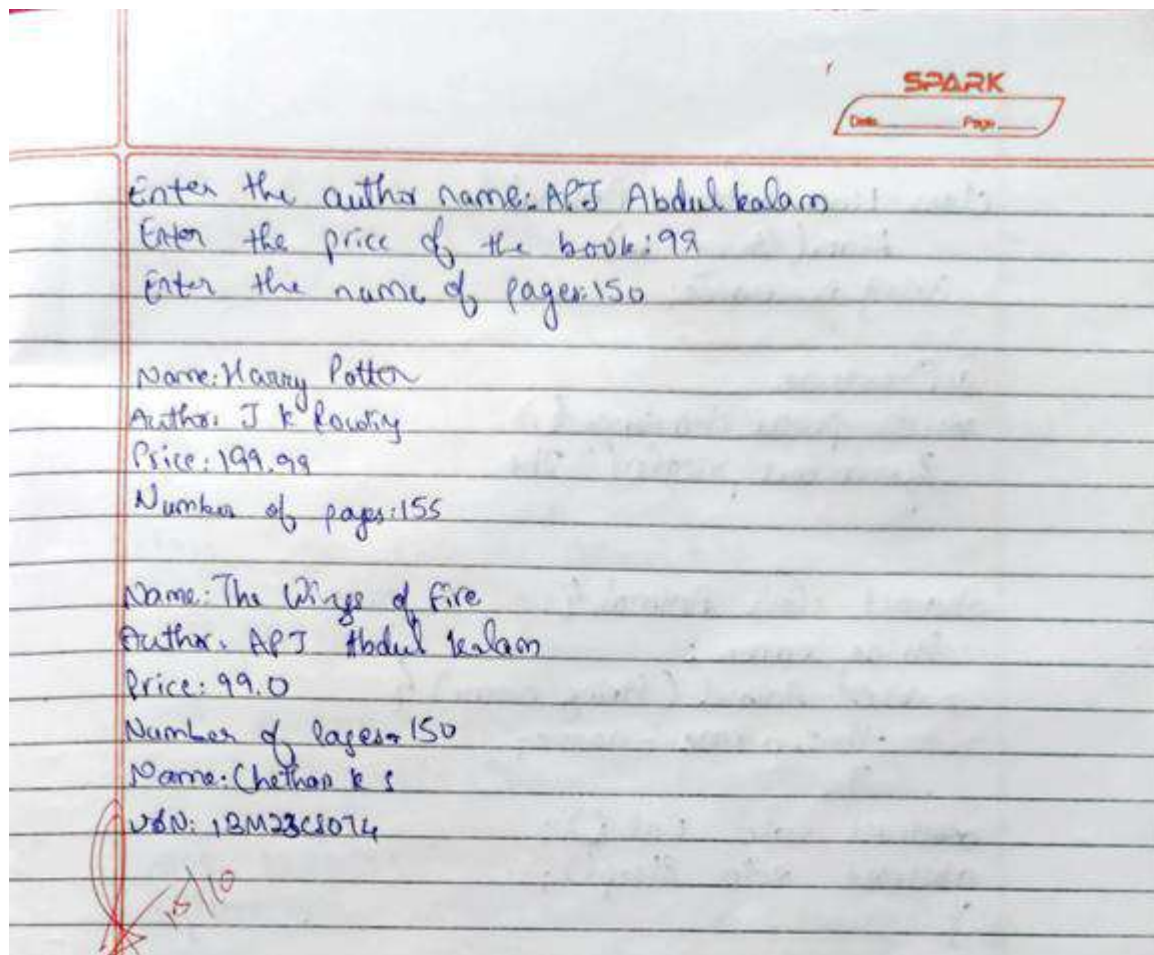 SPARK
Date Page
Enter the author name: APJ Abdul kalam
Enter the price of the book: 99
Enter the name of pages: 150
Name: Harry Potter
Author: J K Rowling
Price: 199.99
Number of pages: 155
Name: The Wings of fire
Author: APJ Abdul kalam
Price: 99.0
Number of Pages: 150
Name: Chethan K S
USN: 1BM23CS074
15/10